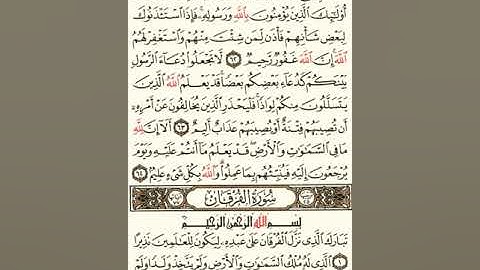 أُوْلَٰٓئِكَ ٱلَّذِينَ يُؤْمِنُونَ بِٱللَّهِ وَرَسُولِهِۦۚ فَإِذَا ٱسْتَـْٔذَنُوكَ
لِبَعْضِ شَأْنِهِمْ فَأْذَن لِّمَن شِئْتَ مِنْهُمْ وَٱسْتَغْفِرْ لَهُمُ
ٱللَّهَۚ إِنَّ ٱللَّهَ غَفُورٌ رَّحِيمٌ ٦٢ لَّا تَجْعَلُواْ دُعَآءَ ٱلرَّسُولِ
بَيْنَكُمْ كَدُعَآءِ بَعْضِكُم بَعْضًاۚ قَدْ يَعْلَمُ ٱللَّهُ ٱلَّذِينَ
يَتَسَلَّلُونَ مِنكُمْ لِوَاذًاۚ فَلْيَحْذَرِ ٱلَّذِينَ يُخَالِفُونَ عَنْ أَمْرِهِۦٓ
أَن تُصِيبَهُمْ فِتْنَةٌ أَوْ يُصِيبَهُمْ عَذَابٌ أَلِيمٌ ٦٣ أَلَآ إِنَّ لِلَّهِ
مَا فِي ٱلسَّمَٰوَٰتِ وَٱلْأَرْضِۖ قَدْ يَعْلَمُ مَآ أَنتُمْ عَلَيْهِ وَيَوْمَ
يُرْجَعُونَ إِلَيْهِ فَيُنَبِّئُهُم بِمَا عَمِلُواْۗ وَٱللَّهُ بِكُلِّ شَىْءٍ عَلِيمٌۢ ٦٤
سُورَةُ ٱلْفُرْقَانِ
بِسْمِ ٱللَّهِ ٱلرَّحْمَٰنِ ٱلرَّحِيمِ
تَبَارَكَ ٱلَّذِي نَزَّلَ ٱلْفُرْقَانَ عَلَىٰ عَبْدِهِۦ لِيَكُونَ لِلْعَٰلَمِينَ نَذِيرًا
١ ٱلَّذِي لَهُۥ مُلْكُ ٱلسَّمَٰوَٰتِ وَٱلْأَرْضِ وَلَمْ يَتَّخِذْ وَلَدًا وَلَمْ